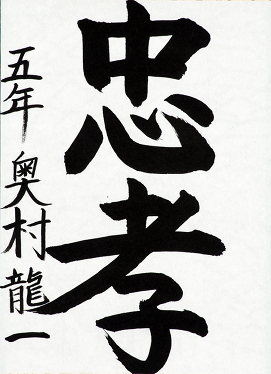 忠孝
五年 奥村龍一